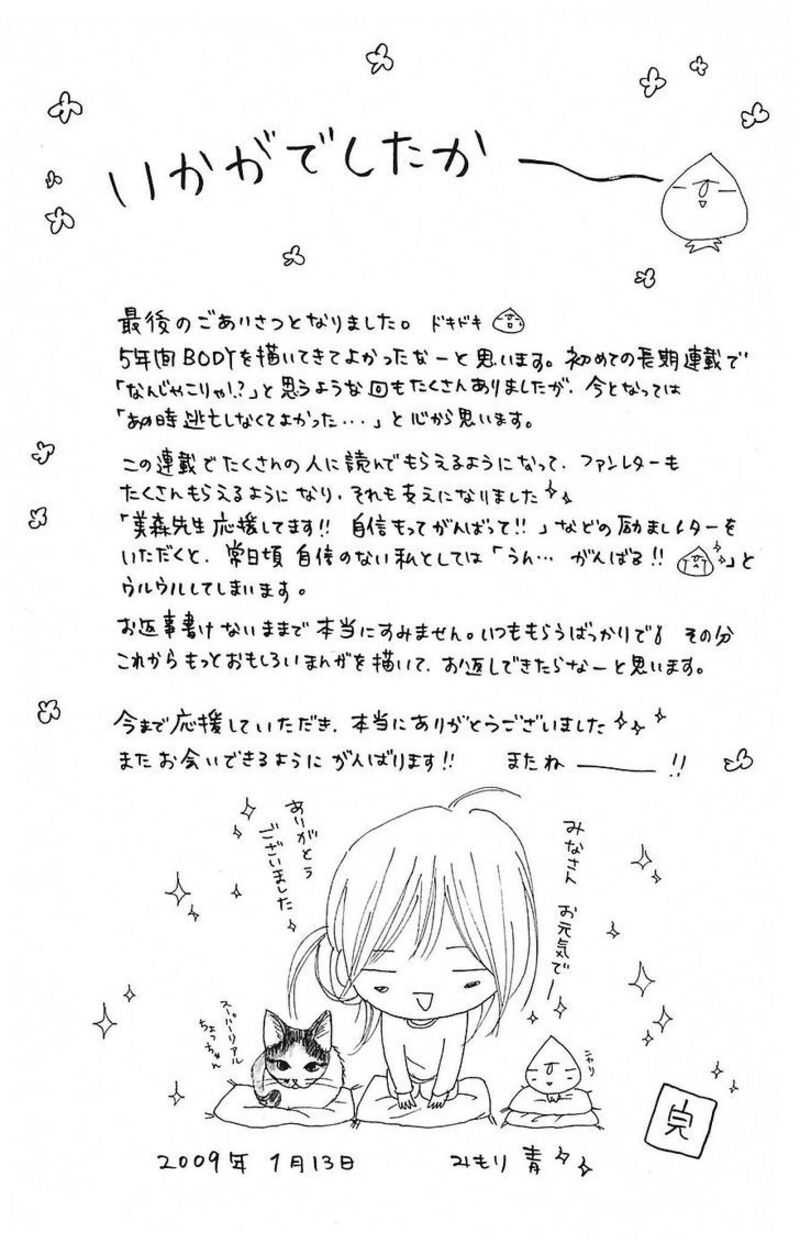 いかがでしたか
最後のごあいさつとなりました。 ドキドキ
5年間BODYを描いてきてよかったなーと思います。初めての長期連載で
「なんじゃこりゃ!?」と思うような回もたくさんありましたが、今となっては
「あの時逃亡しなくてよかった・・・」と心から思います。
この連載でたくさんの人に読んでもらえるようになって、ファンレターも
たくさんもらえるようになり、それも支えになりました
「美森先生応援してます!! 自信もってがんばって!!」などの励ましレターを
いただくと、常日頃自信のない私としては「うん… がんばる!! 」と
ウルウルしてしまいます。
お返事書けないままで本当にすみません。いつももらうばっかりで その分
これからもっとおもしろいまんがを描いて、お返しできたらなーと思います。
今まで応援していただき、本当にありがとうございました
またお会いできるようにがんばります!! またね――!!
みなさん お元気でー
ありがとう
ございました
スーパーリアル
ちょっちゃん
ニヤリ
完
2009年 1月13日 みもり青